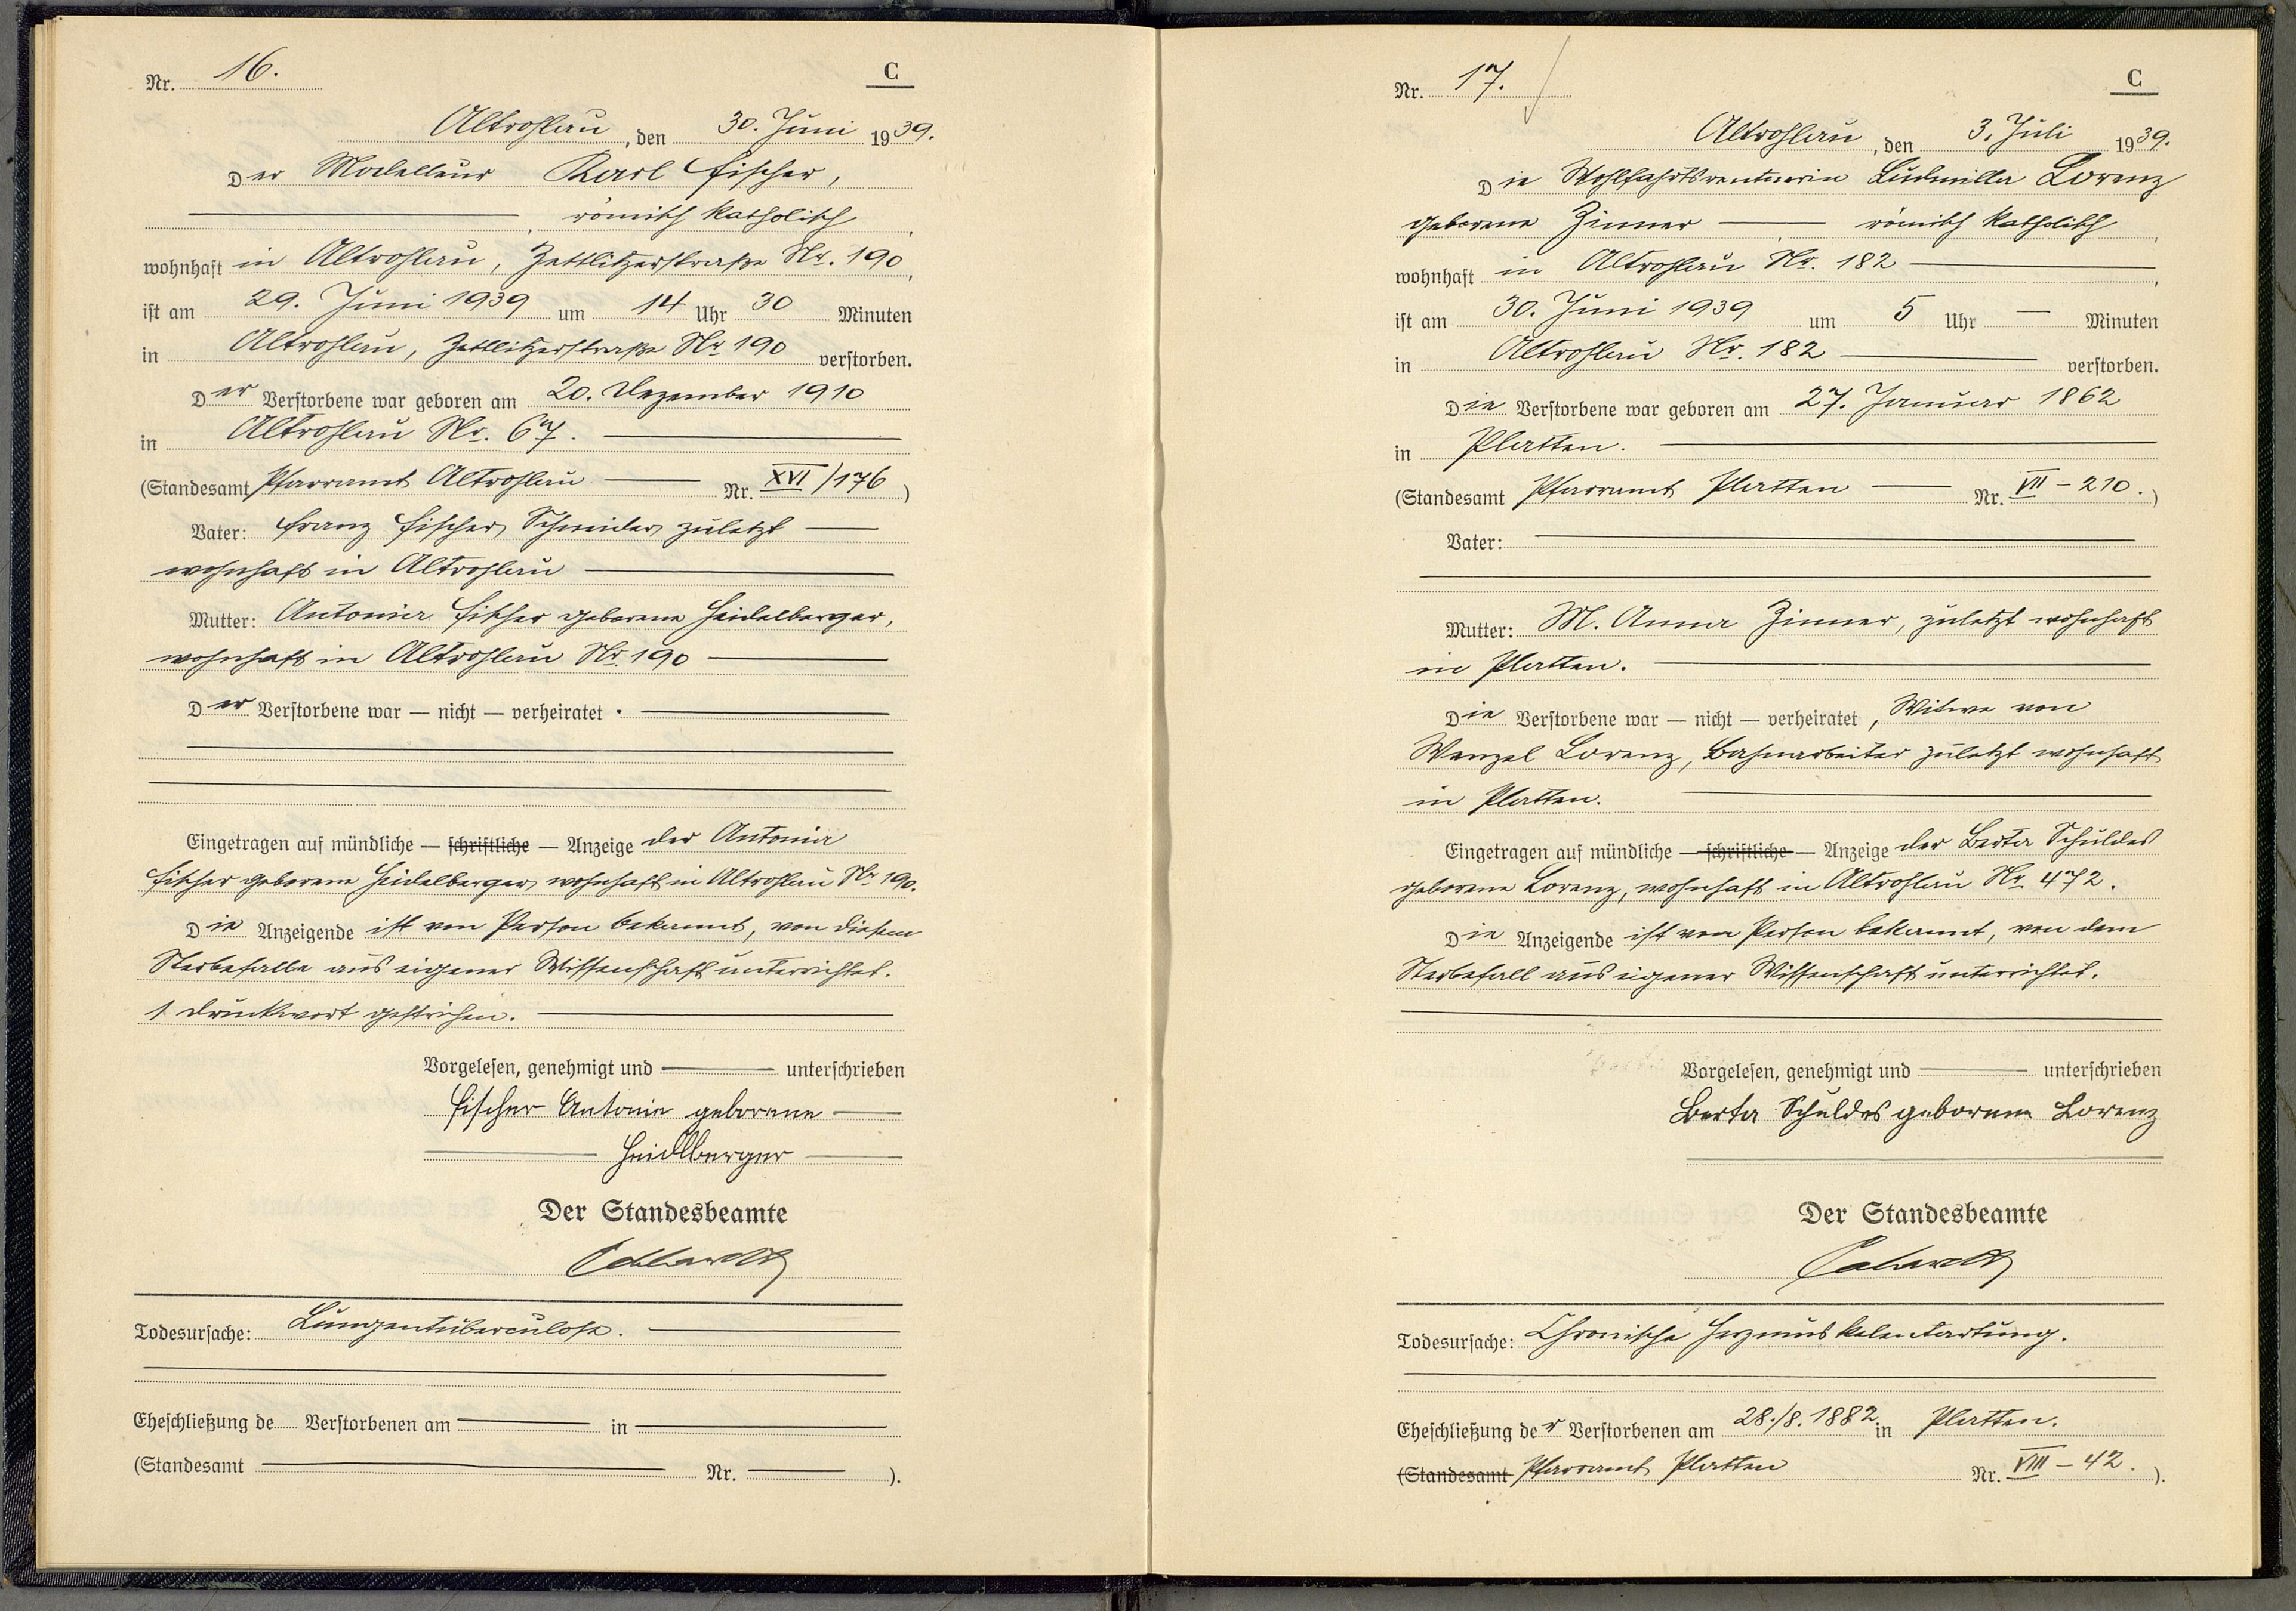 Nr. 16.
C
Altrohlau, den 30. Juni 1939.
Der Modelleur Karl Fischer,
römisch katholisch,
wohnhaft in Altrohlau, Zettlitzerstraße Nr. 190,
ist am 29. Juni 1939 um 14 Uhr 30 Minuten
in Altrohlau, Zettlitzerstraße Nr 190 verstorben.
Der Verstorbene war geboren am 20. Dezember 1910
in Altrohlau Nr. 67.
(Standesamt Pfarramt Altrohlau Nr. XVI/176)
Vater: Franz Fischer, Schneider, zuletzt
wohnhaft in Altrohlau
Mutter: Antonia Fischer geborene Heidelberger,
wohnhaft in Altrohlau Nr. 190
Der Verstorbene war — nicht — verheiratet.
Eingetragen auf mündliche — schriftliche — Anzeige der Antonia
Fischer geborene Heidelberger, wohnhaft in Altrohlau Nr 190.
Die Anzeigende ist von Person bekannt, von diesem
Sterbefalle aus eigener Wissenschaft unterrichtet.
1 Druckwort gestrichen.
Vorgelesen, genehmigt und unterschrieben
Fischer Antonie geborene
Heidlberger
Der Standesbeamte
Todesursache: Lungentuberculose.
Eheschließung de Verstorbenen am in
(Standesamt Nr. ).
Nr. 17.
C
Altrohlau, den 3. Juli 1939.
Die Wohlfahrtsrentnerin Ludmilla Lorenz
geborene Zinner, römisch katholisch,
wohnhaft in Altrohlau Nr. 182,
ist am 30. Juni 1939 um 5 Uhr — Minuten
in Altrohlau Nr. 182 verstorben.
Die Verstorbene war geboren am 27. Januar 1862
in Platten.
(Standesamt Pfarramt Platten Nr. VII – 210.)
Vater:
Mutter: M. Anna Zinner, zuletzt wohnhaft
in Platten.
Die Verstorbene war — nicht — verheiratet, Witwe von
Wenzel Lorenz, Bahnarbeiter zuletzt wohnhaft
in Platten.
Eingetragen auf mündliche — schriftliche — Anzeige der Berta Schuldes
geborene Lorenz, wohnhaft in Altrohlau Nr. 472.
Die Anzeigende ist von Person bekannt, von dem
Sterbefall aus eigener Wissenschaft unterrichtet.
Vorgelesen, genehmigt und unterschrieben
Berta Schuldes geborene Lorenz
Der Standesbeamte
Todesursache: Chronische Herzmuskelentartung.
Eheschließung der Verstorbenen am 28./8. 1882 in Platten.
(Standesamt Pfarramt Platten Nr. VIII – 42.).